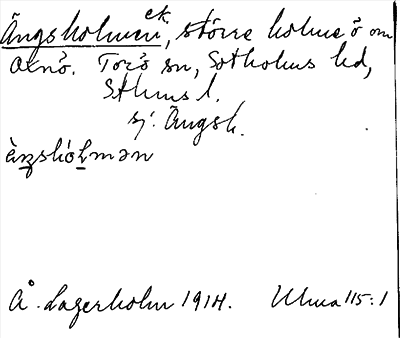 Ängsholmen ek, större holme ö om
Arnö. Torö sn, Sotholms hd,
Sthms l.
sj: Ängsh.
àŋshóḷmən
Å. Lagerholm 1914. Ulma 115:1